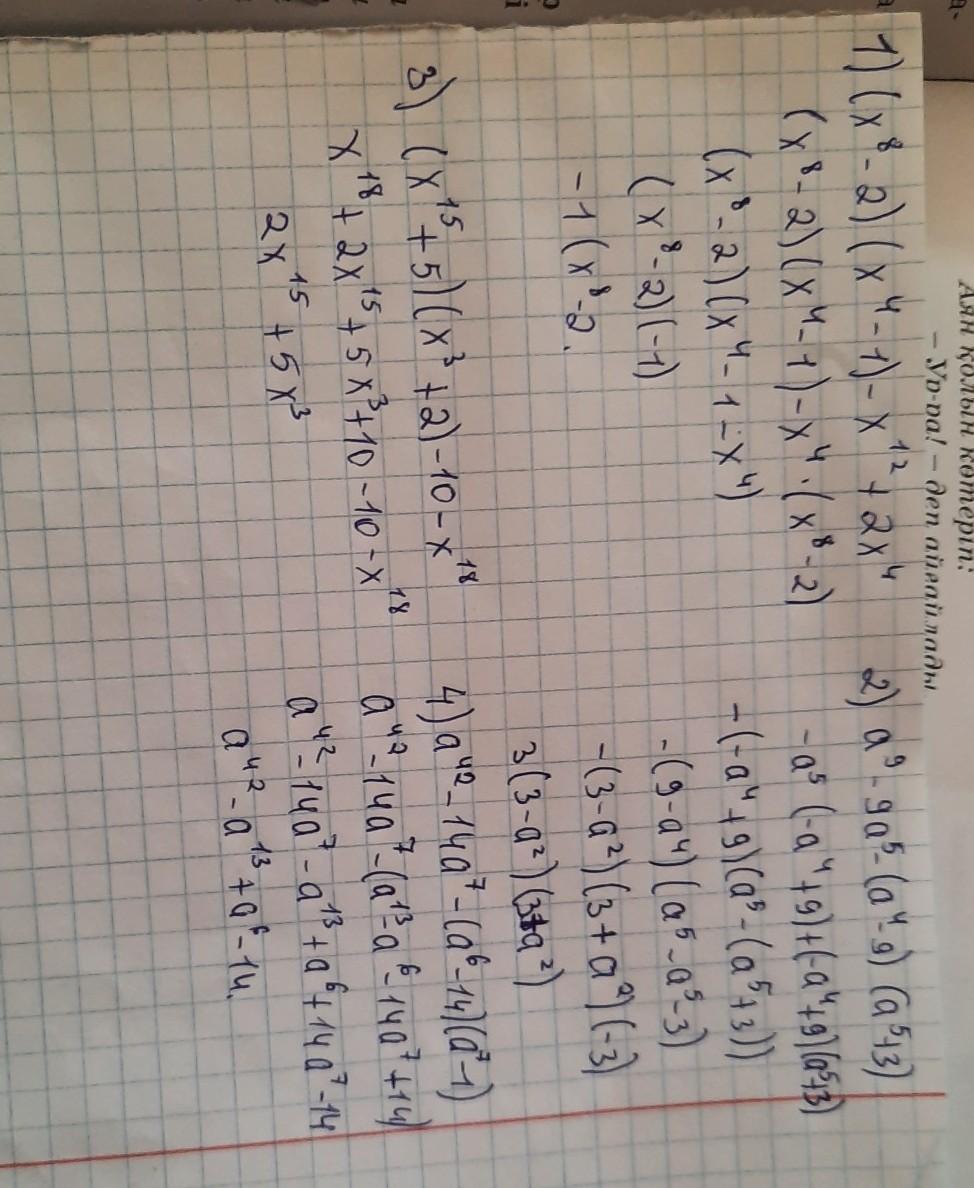 Аян қолын көтеріп:
– Ур-ра! – деп айғайлады
1) (x⁸ - 2)(x⁴ - 1) - x¹² + 2x⁴
(x⁸ - 2)(x⁴ - 1) - x⁴ · (x⁸ - 2)
(x⁸ - 2)(x⁴ - 1 - x⁴)
(x⁸ - 2)(-1)
-1(x⁸ - 2.
2) a⁹ - 9a⁵ - (a⁴ - 9)(a⁵ + 3)
-a⁵(-a⁴ + 9) + (-a⁴ + 9)(a⁵ + 3)
-(-a⁴ + 9)(a⁵ - (a⁵ + 3))
-(9 - a⁴)(a⁵ - a⁵ - 3)
-(3 - a²)(3 + a²)(-3)
3(3 - a²)(3 + a²)
3) (x¹⁵ + 5)(x³ + 2) - 10 - x¹⁸
x¹⁸ + 2x¹⁵ + 5x³ + 10 - 10 - x¹⁸
2x¹⁵ + 5x³
4) a⁴² - 14a⁷ - (a⁶ - 14)(a⁷ - 1)
a⁴² - 14a⁷ - (a¹³ - a⁶ - 14a⁷ + 14)
a⁴² - 14a⁷ - a¹³ + a⁶ + 14a⁷ - 14
a⁴² - a¹³ + a⁶ - 14.